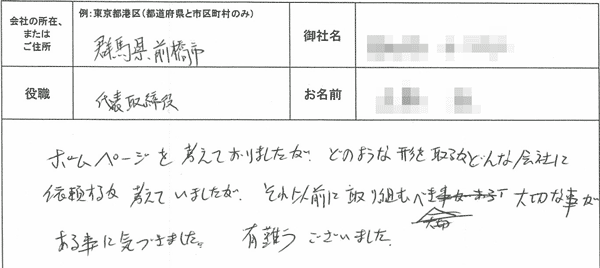 会社の所在、
または
ご住所
例:東京都港区(都道府県と市区町村のみ)
群馬県、前橋市
御社名
役職
代表取締役
お名前
ホームページを考えておりましたが、どのような形を取るかどんな会社に
依頼するか考えていましたが、それ以前に取り組むべき大切な事が
ある事に気づきました。有難うございました。